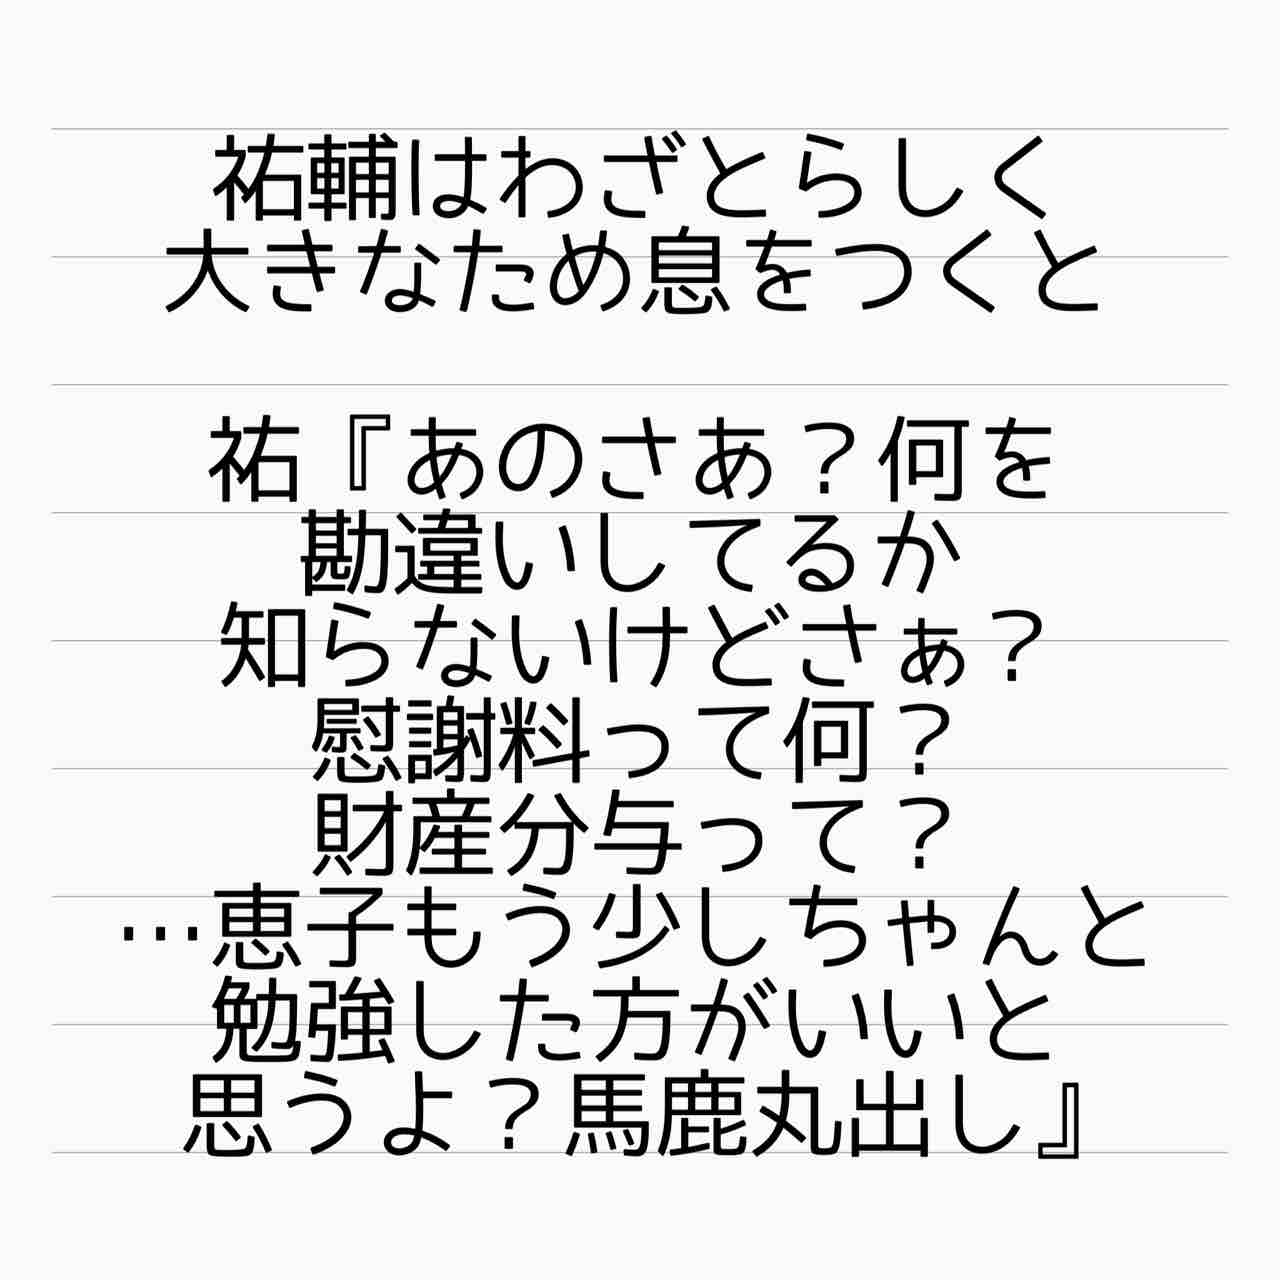 祐輔はわざとらしく
大きなため息をつくと
祐『あのさあ？何を
勘違いしてるか
知らないけどさぁ？
慰謝料って何？
財産分与って？
…恵子もう少しちゃんと
勉強した方がいいと
思うよ？馬鹿丸出し』